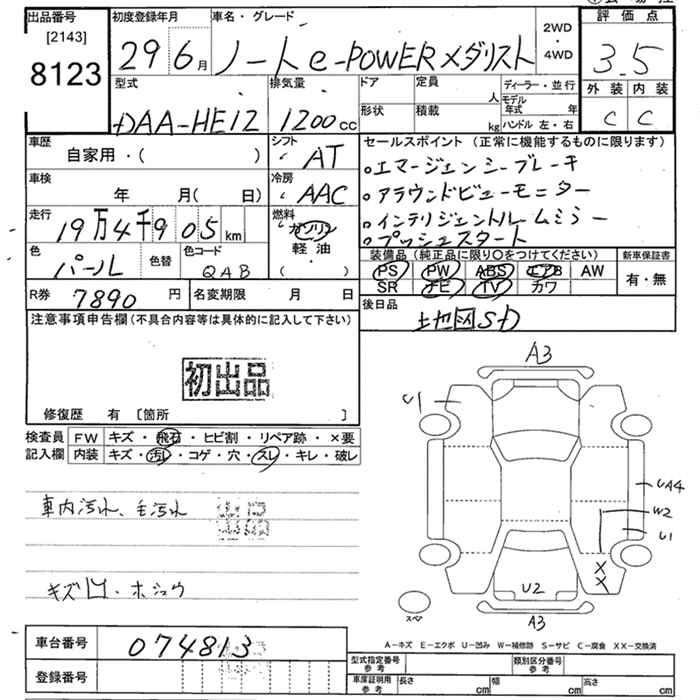 出品番号
[2143]
8123
初度登録年月
29 6月
車名・グレード
ノートe-POWERメダリスト
2WD
・
4WD
評価点
3.5
外装 内装
C C
型式
DAA-HE12
排気量
1200cc
ドア
形状
定員
人
積載
kg
ディーラー・並行
モデル年式 年
ハンドル 左・右
車歴
自家用・( )
シフト
AT
車検
年 月( 日)
冷房
AAC
走行
19万4千905km
燃料
ガソリン
軽油
( ・ )
色
パール
色替
色コード
QAB
R券
7890円
名変期限 月 日
セールスポイント(正常に機能するものに限ります)
。エマージェンシーブレーキ
。アラウンドビューモニター
。インテリジェントルームミラー
。プッシュスタート
装備品(純正品に限り〇をつけてください)
PS PW ABS エアB AW
SR ナビ TV カワ
新車保証書
有・無
後日品
地図SD
注意事項申告欄(不具合内容等は具体的に記入して下さい)
初出品
修復歴 有 [箇所 ]
検査員
記入欄
FW キズ・飛石・ヒビ割・リペア跡・×要
内装 キズ・汚れ・コゲ・穴・スレ・キレ・破レ
車内汚れ、毛汚れ
出口
キズ凹・ホシュウ
A3
U1
UA4
W2
U1
XX
U2
A3
スペア
車台番号
074813
登録番号
A－キズ E－エクボ U－凹み W－補修跡 S－サビ C－腐食 XX－交換済
型式指定番号
参考
類別区分番号
参考
車庫証明用
参考
長さ cm 幅 cm 高さ cm